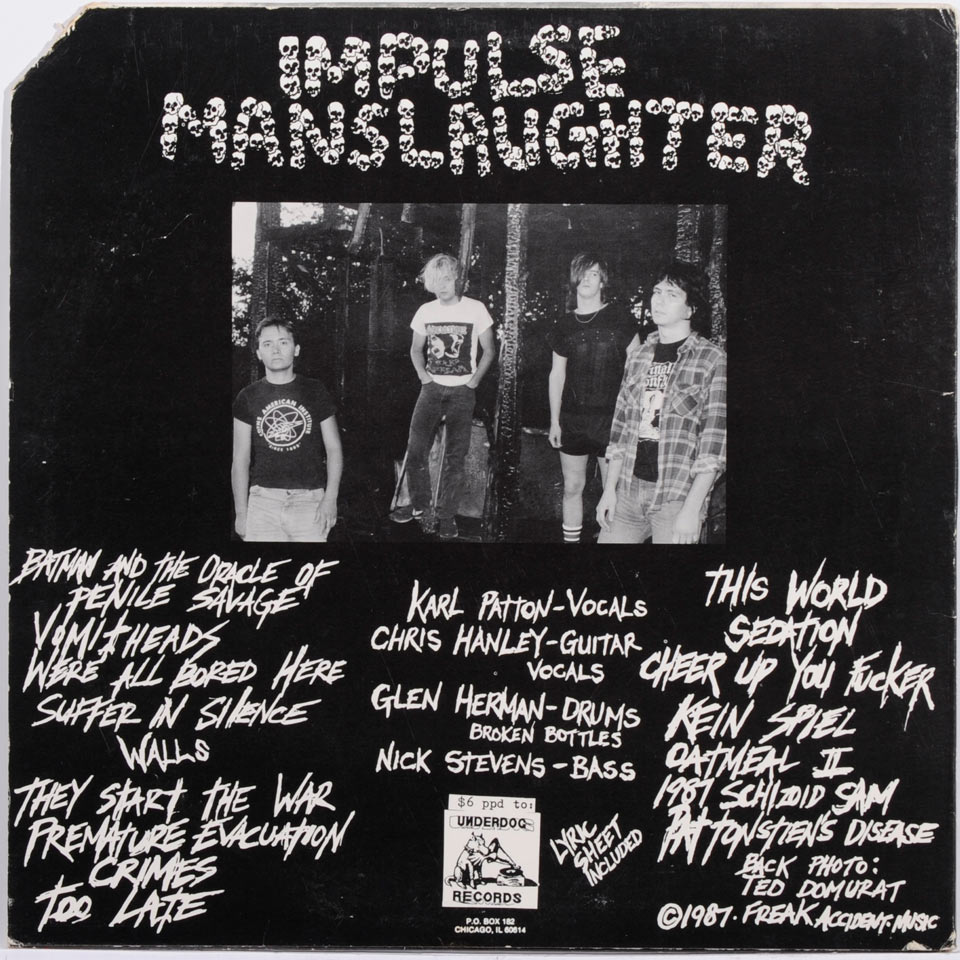 IMPULSE
MANSLAUGHTER
AMERICAN INSTITUTE
BATMAN AND THE ORACLE OF
PENILE SAVAGE
VOMITHEADS
WERE ALL BORED HERE
SUFFER IN SILENCE
WALLS
THEY START THE WAR
PREMATURE EVACUATION
CRIMES
TOO LATE
KARL PATTON-VOCALS
CHRIS HANLEY-GUITAR
VOCALS
GLEN HERMAN-DRUMS
BROKEN BOTTLES
NICK STEVENS-BASS
$6 ppd to:
UNDERDOG
RECORDS
P.O. BOX 182
CHICAGO, IL 60614
LYRIC
SHEET
INCLUDED
THIS WORLD
SEDATION
CHEER UP YOU FUCKER
KEIN SPIEL
OATMEAL II
1987 SCHIZOID SAM
PATTONSTIEN'S DISEASE
BACK PHOTO:
TED DOMURAT
©1987. FREAK ACCIDENT. MUSIC